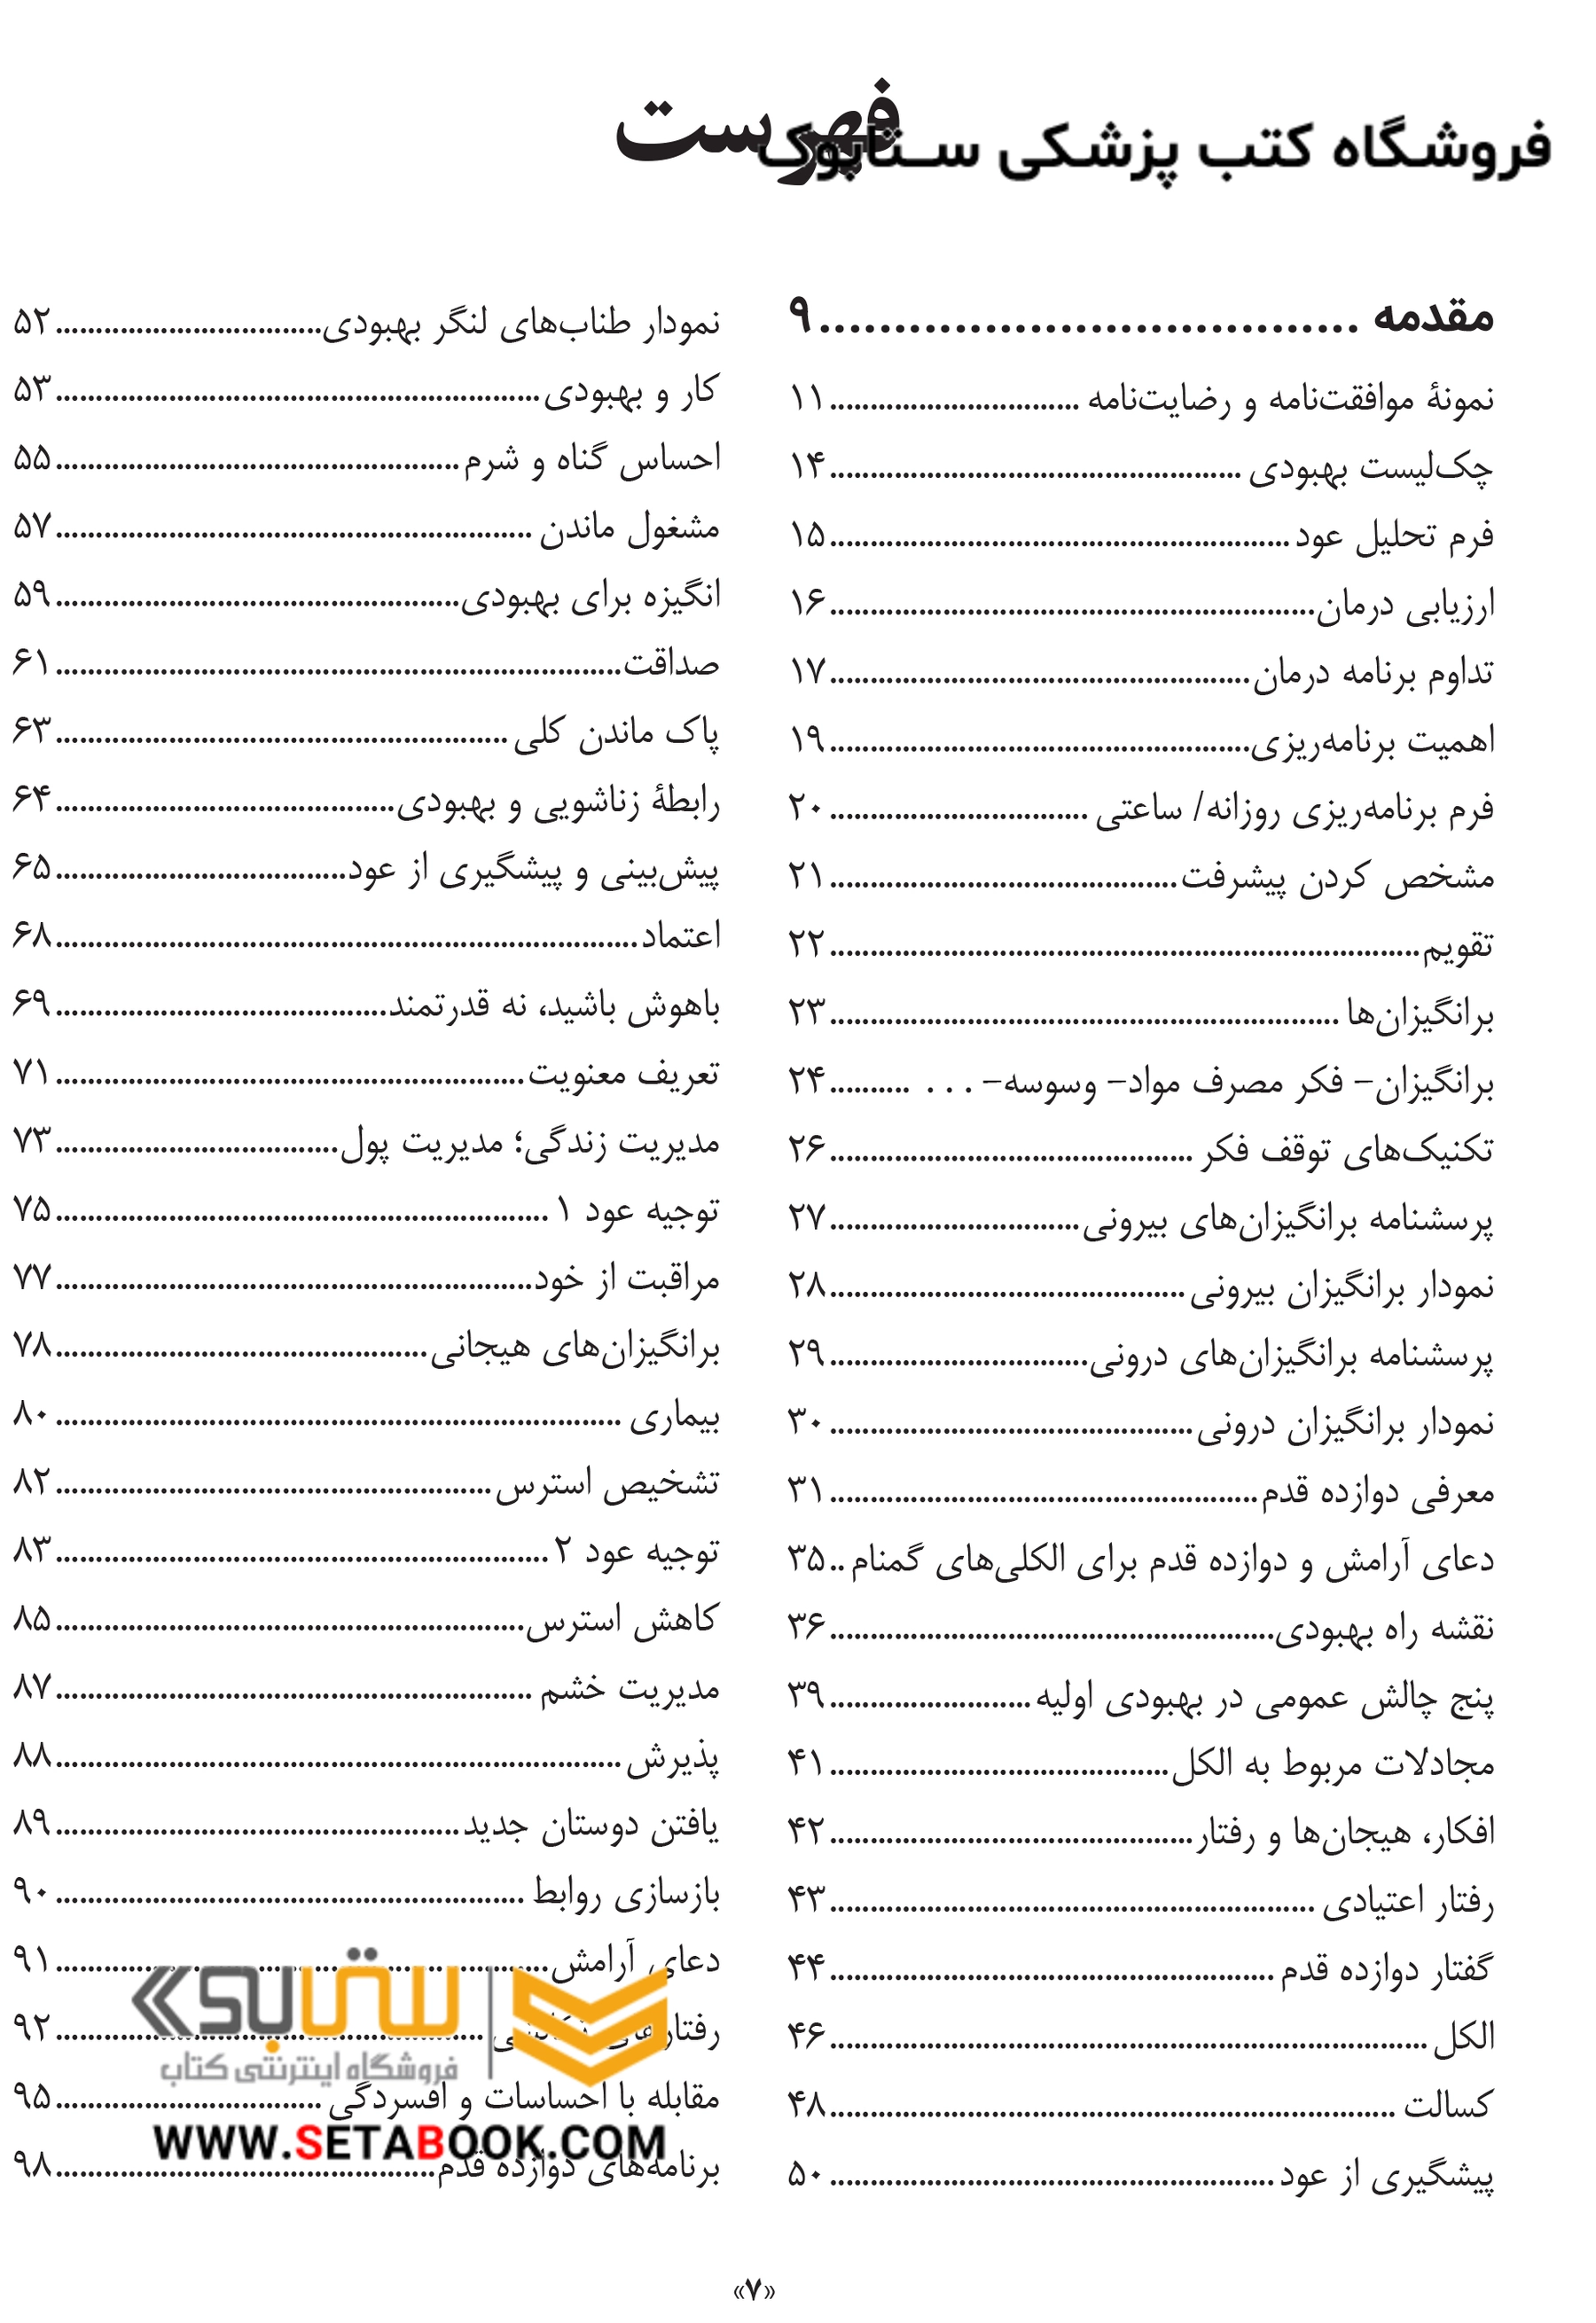 فهرست
فروشگاه کتب پزشکی ستابوک
مقدمه ..... ۹
نمونهٔ موافقت‌نامه و رضایت‌نامه ..... ۱۱
چک‌لیست بهبودی ..... ۱۴
فرم تحلیل عود ..... ۱۵
ارزیابی درمان ..... ۱۶
تداوم برنامه درمان ..... ۱۷
اهمیت برنامه‌ریزی ..... ۱۹
فرم برنامه‌ریزی روزانه/ ساعتی ..... ۲۰
مشخص کردن پیشرفت ..... ۲۱
تقویم ..... ۲۲
برانگیزان‌ها ..... ۲۳
برانگیزان– فکر مصرف مواد– وسوسه– . . . ..... ۲۴
تکنیک‌های توقف فکر ..... ۲۶
پرسشنامه برانگیزان‌های بیرونی ..... ۲۷
نمودار برانگیزان بیرونی ..... ۲۸
پرسشنامه برانگیزان‌های درونی ..... ۲۹
نمودار برانگیزان درونی ..... ۳۰
معرفی دوازده قدم ..... ۳۱
دعای آرامش و دوازده قدم برای الکلی‌های گمنام .. ۳۵
نقشه راه بهبودی ..... ۳۶
پنج چالش عمومی در بهبودی اولیه ..... ۳۹
مجادلات مربوط به الکل ..... ۴۱
افکار، هیجان‌ها و رفتار ..... ۴۲
رفتار اعتیادی ..... ۴۳
گفتار دوازده قدم ..... ۴۴
الکل ..... ۴۶
کسالت ..... ۴۸
پیشگیری از عود ..... ۵۰
نمودار طناب‌های لنگر بهبودی ..... ۵۲
کار و بهبودی ..... ۵۳
احساس گناه و شرم ..... ۵۵
مشغول ماندن ..... ۵۷
انگیزه برای بهبودی ..... ۵۹
صداقت ..... ۶۱
پاک ماندن کلی ..... ۶۳
رابطهٔ زناشویی و بهبودی ..... ۶۴
پیش‌بینی و پیشگیری از عود ..... ۶۵
اعتماد ..... ۶۸
باهوش باشید، نه قدرتمند ..... ۶۹
تعریف معنویت ..... ۷۱
مدیریت زندگی؛ مدیریت پول ..... ۷۳
توجیه عود ۱ ..... ۷۵
مراقبت از خود ..... ۷۷
برانگیزان‌های هیجانی ..... ۷۸
بیماری ..... ۸۰
تشخیص استرس ..... ۸۲
توجیه عود ۲ ..... ۸۳
کاهش استرس ..... ۸۵
مدیریت خشم ..... ۸۷
پذیرش ..... ۸۸
یافتن دوستان جدید ..... ۸۹
بازسازی روابط ..... ۹۰
دعای آرامش ..... ۹۱
رفتارهای ..... ۹۲
مقابله با احساسات و افسردگی ..... ۹۵
برنامه‌های دوازده قدم ..... ۹۸
ستابوک
فروشگاه اینترنتی کتاب
WWW.SETABOOK.COM
«۷»